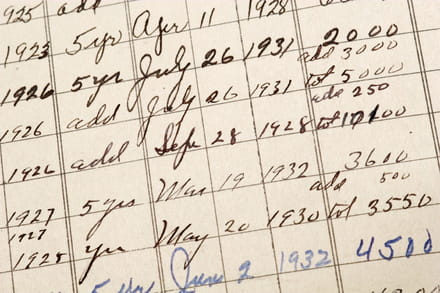 925 add 1928
1923 5 yr Apr 11
1926 5 yr July 26 1931 2000
add 3000
1926 add July 26 1931 tot 5000
add 250
1926 add Sept 28 1928 tot
1927 5 yrs Mar 19 1932 3600
1927 add 500
1925 yr May 20 1930 tot 3550
5 yr June 2 1932 4500